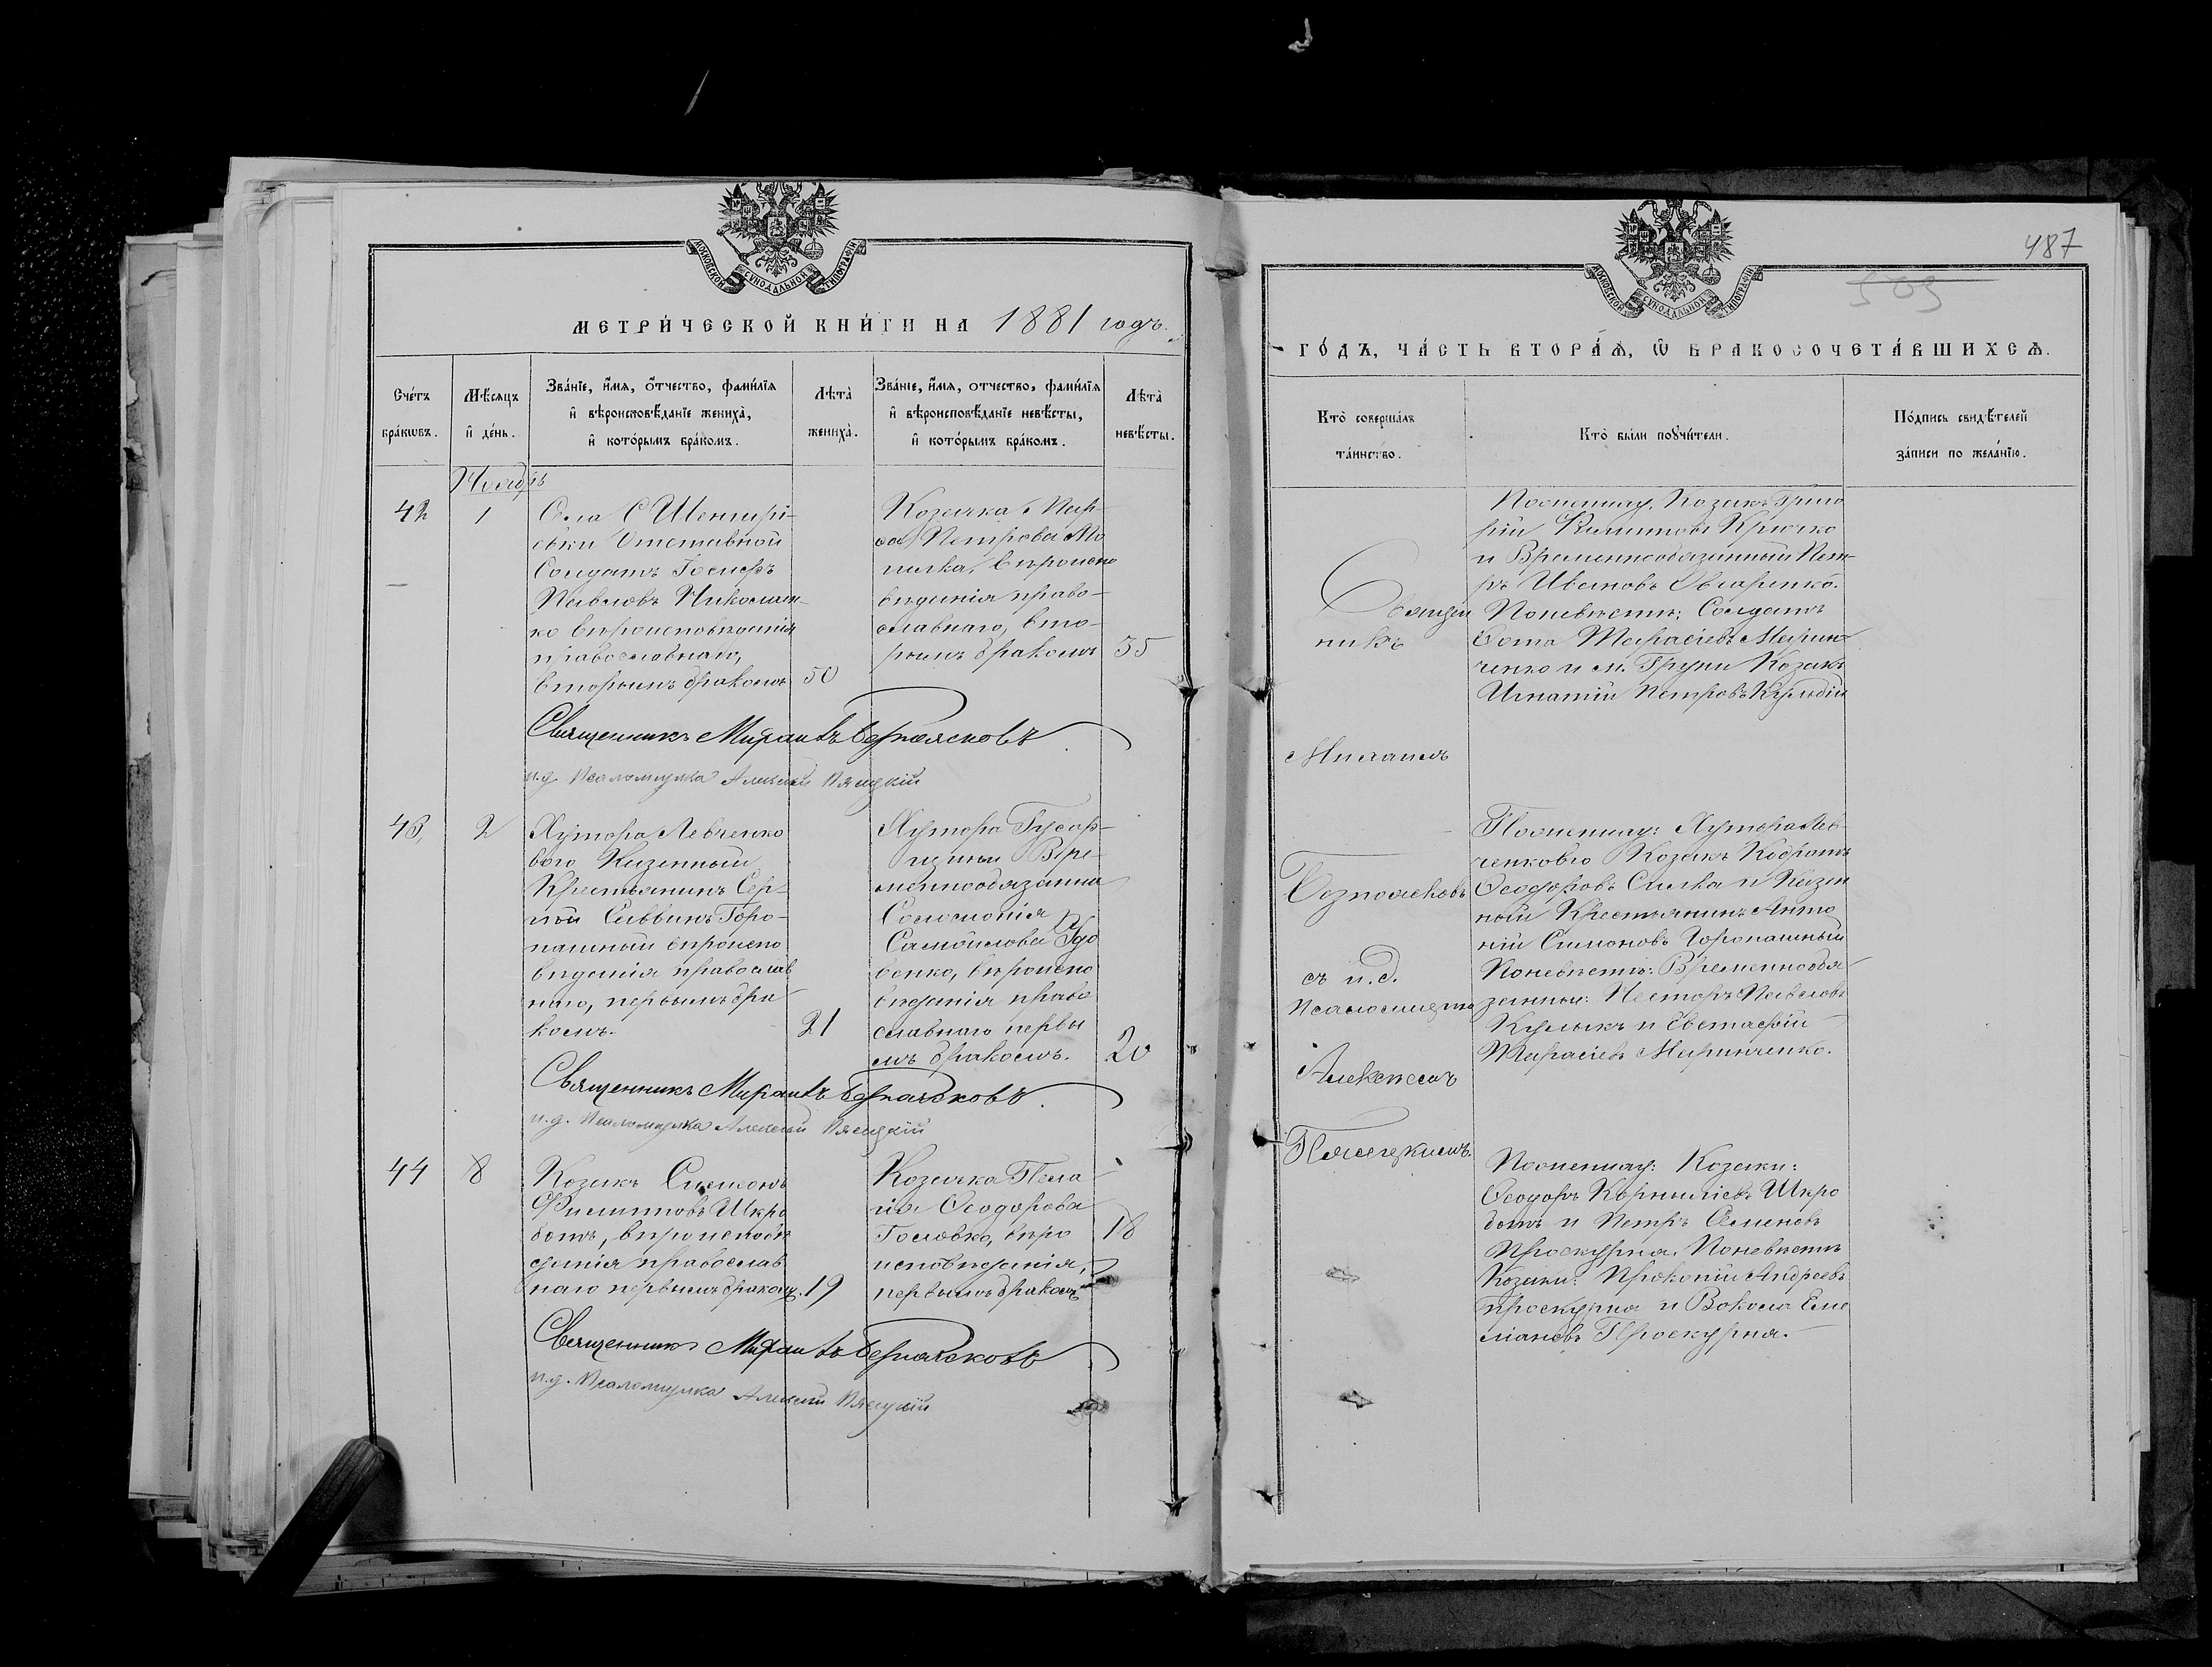 МОСКОВСКОЙ СѴНОДАЛЬНОЙ ТИПОГРАФІИ
МЕТРИ́ЧЕСКОЙ КНИ́ГИ НА 1881 годъ.
Сче́тъ бра́кѡвъ.
Мѣ́сяцъ и҆ де́нь.
Зва́нїе, и҆́мя, ѻ҆́тчество, фами́лїя
и҆ вѣроисповѣ́данїе жениха̀,
и҆ кото́рымъ бра́комъ.
Лѣта̀ жениха̀.
Зва́нїе, и҆́мя, отчество, фами́лїя
и҆ вѣроисповѣ́данїе невѣ́сты,
и҆ кото́рымъ бра́комъ.
Лѣта̀ невѣ́сты.
Ноябрь
42
1
Села
Отставной
Солдатъ
Павловъ Николаен-
ко вѣроисповѣданія
православнаго,
вторымъ бракомъ
50
Козачка
Петрова
вѣроиспо
вѣданія право-
славнаго, вто-
рымъ бракомъ
35
Священникъ Михаилъ Безпоясковъ
и.д. Псаломщика Алексѣй Пясецкій
43,
2
Хутора Левченко
ваго Казенный
Крестьянинъ Сер-
гѣй Саввинъ Горо-
пашный вѣроиспо
вѣданія православ
наго, первымъ бра
комъ.
21
Хутора Гусар-
щины Вре-
меннообязанна
Соломонія
Самойлова
венко, вѣроиспо
вѣданія право
славнаго первы
мъ бракомъ.
20
Священникъ Михаилъ Безпоясковъ
и.д. Псаломщика Алексѣй Пясецкій
44
8
Козакъ Симеонъ
Филиповъ Шкро
ботъ, вѣроисповѣ
данія православ
наго первымъ браком.
19
Козачка Пела
гія Ѳеодорова
Головко, вѣро
исповѣданія,
первымъ бракомъ
18
Священникъ Михаилъ Безпоясковъ
и.д. Псаломщика Алексѣй Пясецкій
487
503
МОСКОВСКОЙ СѴНОДАЛЬНОЙ ТИПОГРАФІИ
ГО́ДЪ, ЧА́СТЬ ВТОРА́Я, Ѿ БРАКОСОЧЕТА́ВШИХСЯ.
Кто̀ соверша́лъ
та́инство.
Кто̀ бы́ли порꙋчи́тели.
По́дпись свидѣ́телей
за́писи по жела́нїю.
Священ
никъ
Михаилъ
Безпоясковъ
съ и.д.
Псаломщика
Алексѣемъ
Пясецкимъ.
Поженику, Козакъ Григо
рій Филиповъ Крючко
и Временнообязанный Пет-
ръ Ивановъ Овчаренко.
Поневѣстѣ: Солдатъ
Тарасіевъ Марин
ченко и м. Груни Козакъ
Игнатій Петровъ
Поженику: Хутора Лев
ченковаго Козакъ Кодратъ
Ѳеодоровъ и Казен
ный Крестьянинъ Анто
ній Симоновъ Горопашный
Поневѣстѣ: Временнообя
занные: Несторъ Павловъ
Кулыкъ и Евстафій
Тарасіевъ Маринченко.
Поженику: Козаки:
Ѳеодоръ Корниліевъ Шкро
ботъ и Петръ Семеновъ
Проскурня. Поневѣстѣ
Козаки: Прокопій Андреевъ
Проскурня и Вокола Еме
ліановъ Проскурня.